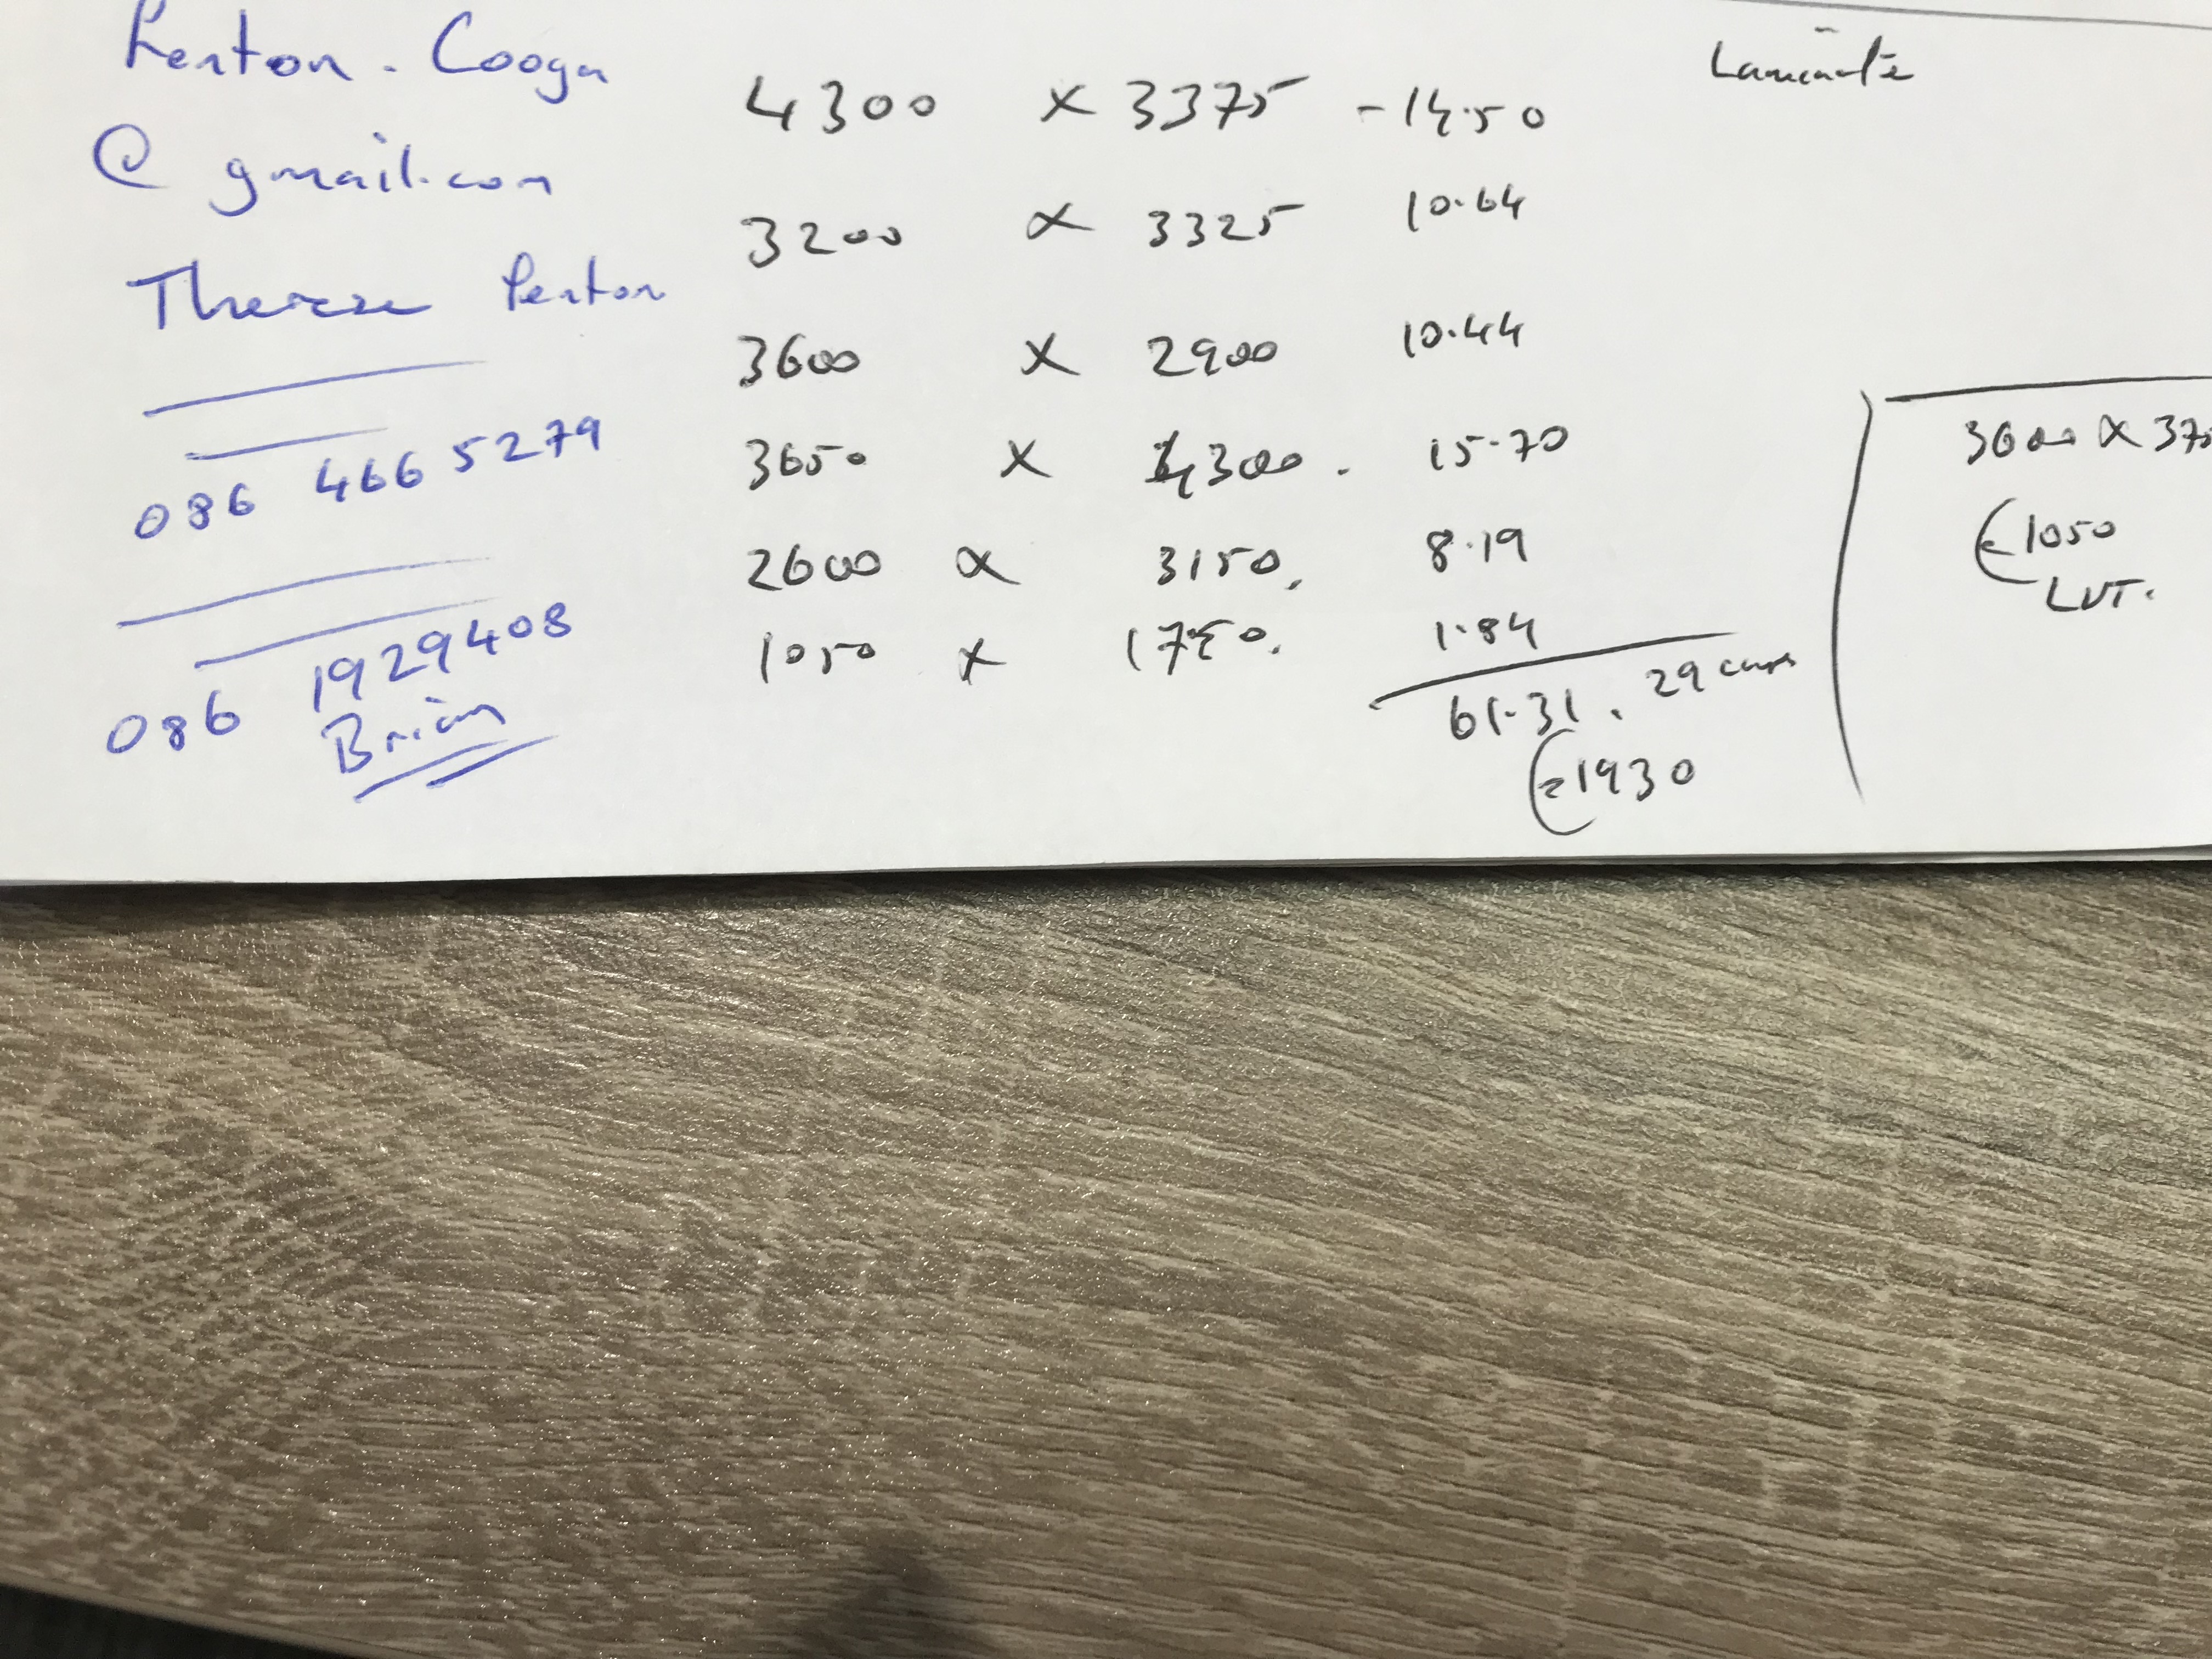 Penton. Cooga
@ gmail.com
Therese Penton
086 466 5279
086 1929408
Brian
Laminate
4300 x 3375 - 14.50
3200 x 3325 10.64
3600 x 2900 10.44
3650 x 4300. 15.70
2600 x 3150. 8.19
1050 x 1750. 1.84
61.31.
€1930
3600 x 375
€1050
LVT.